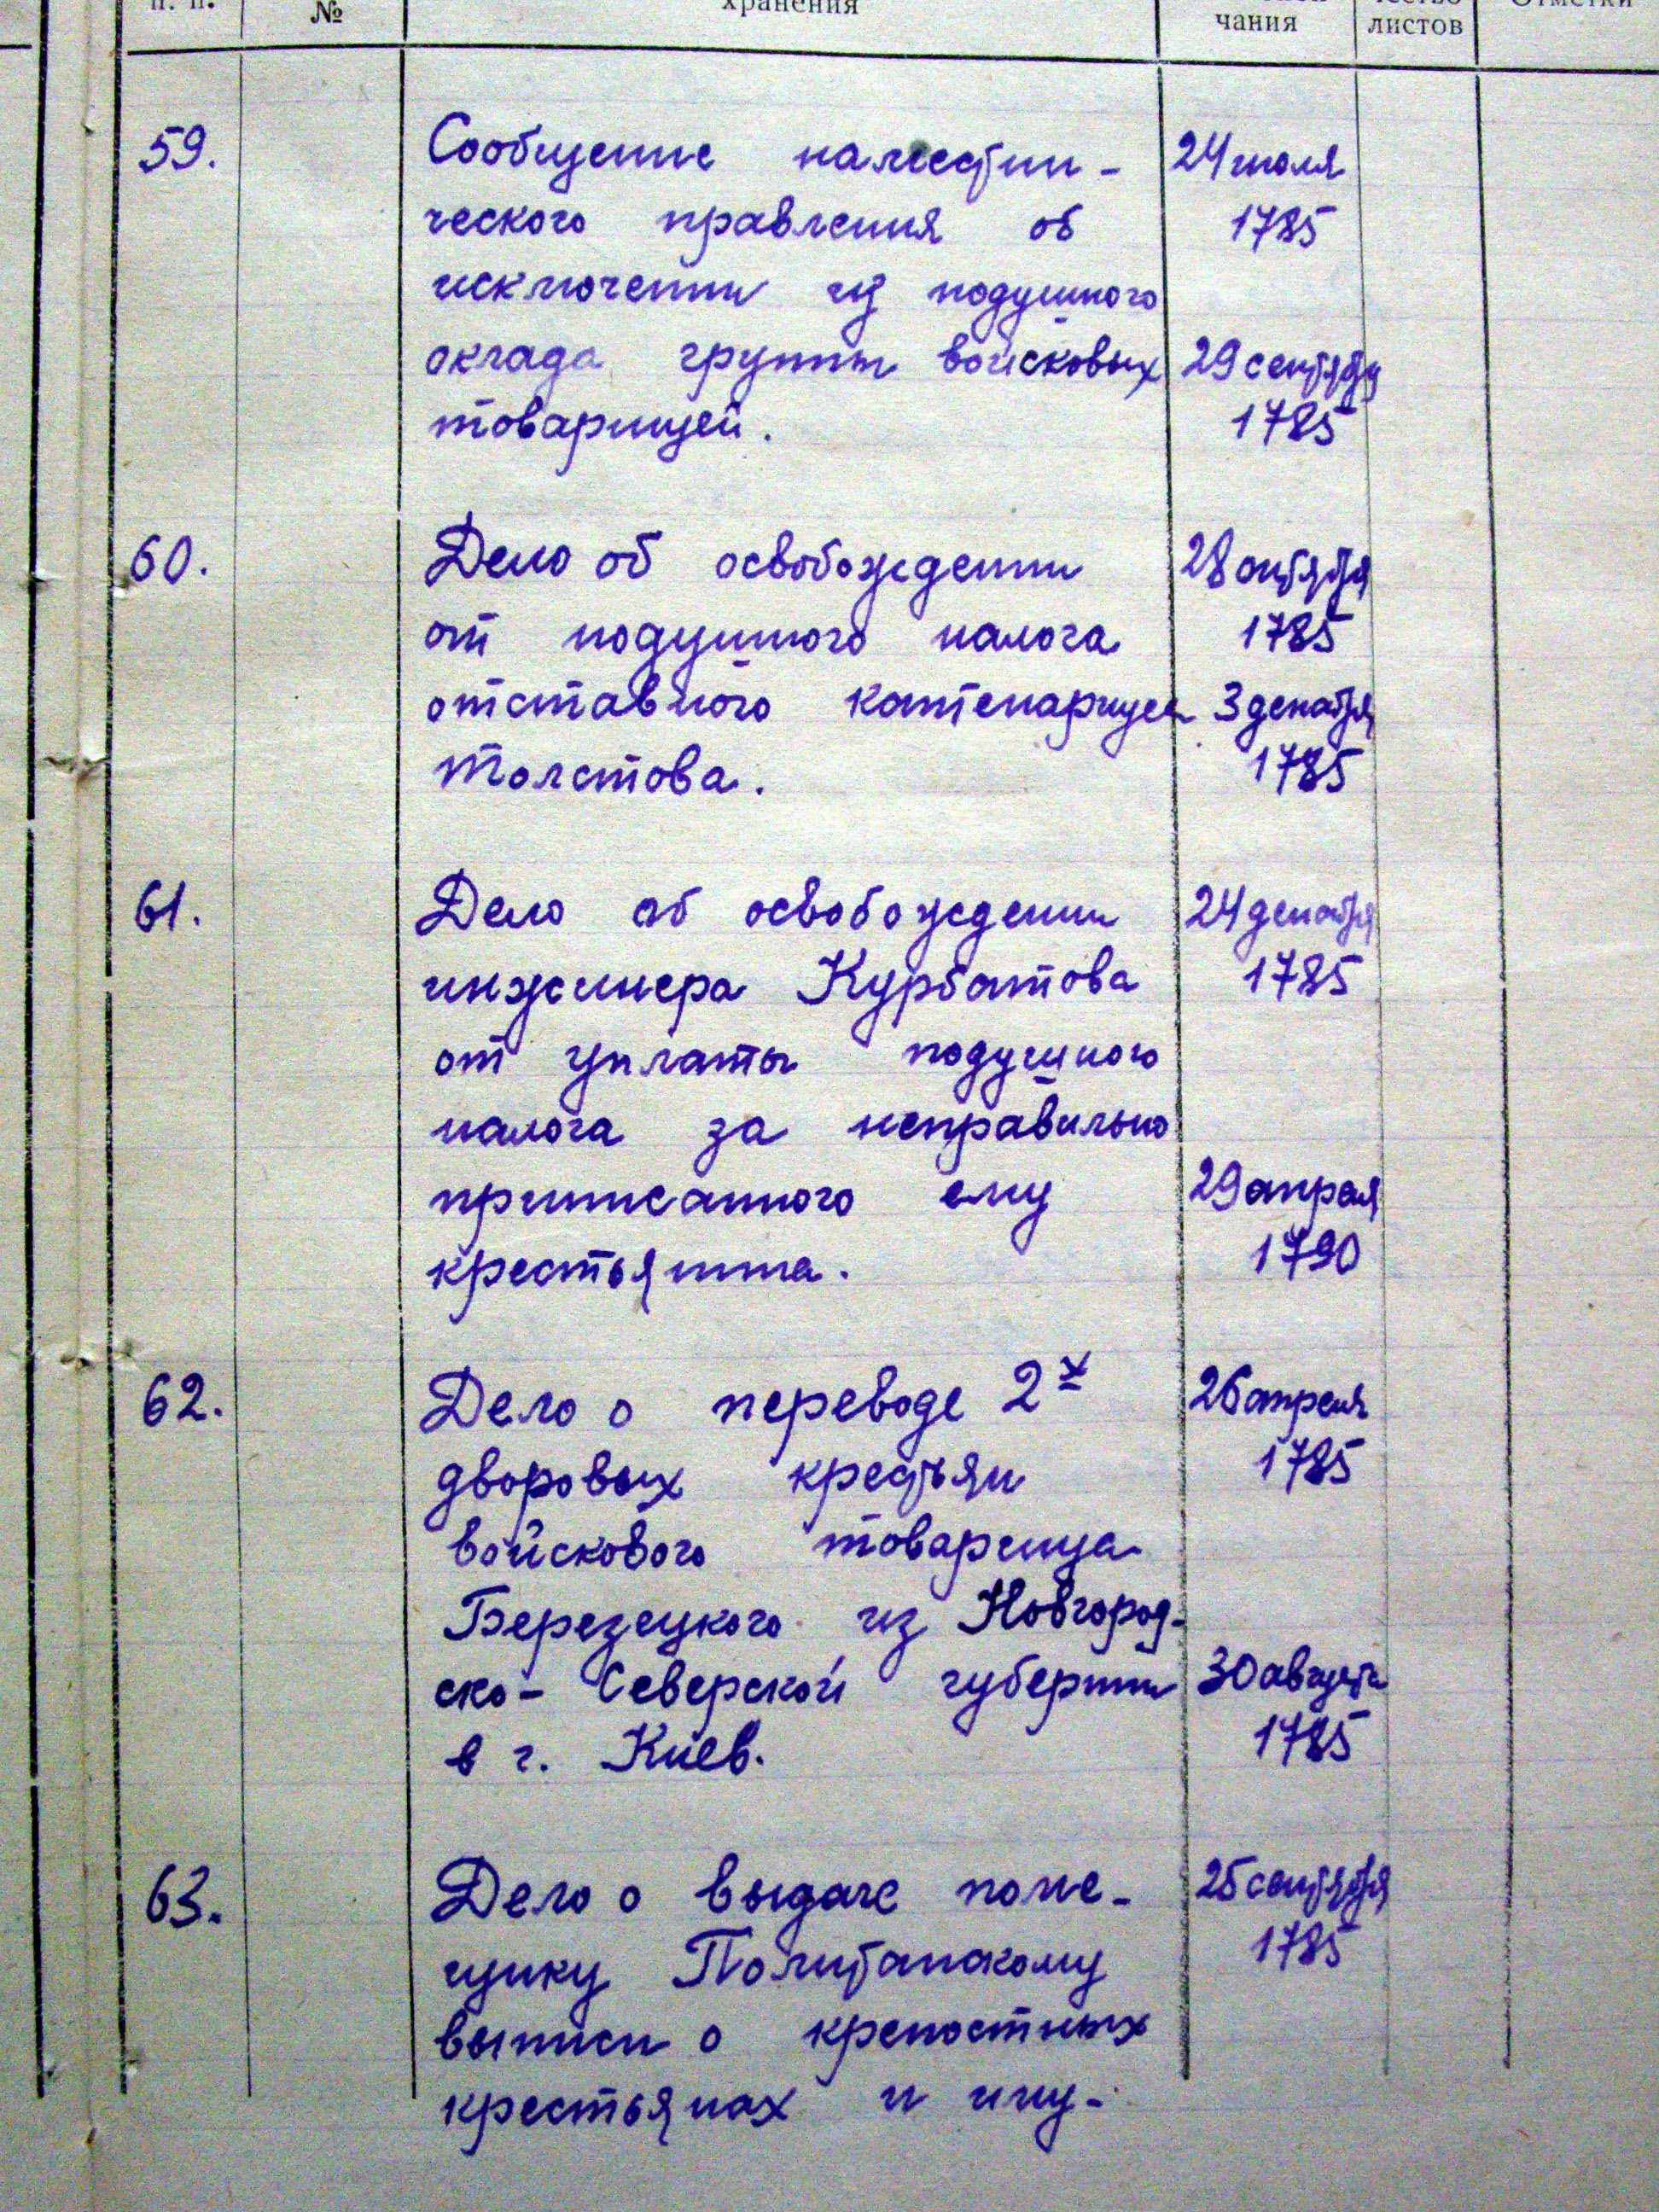 п. п.
№
хранения
чания
листов
59. Сообщение наместни- 24 июля
ческого правления об 1785
исключении из подушного
оклада группы войсковых 29 сентября
товарищей. 1785
60. Дело об освобождении 28 октября
от подушного налога 1785
отставного 3 декабря
Толстова. 1785
61. Дело об освобождении 24 декабря
инженера Курбатова 1785
от уплаты подушного
налога за неправильно
приписанного ему 29 апреля
крестьянина. 1790
62. Дело о переводе 2х 26 апреля
дворовых крестьян 1785
войскового товарища
Березецкого из Новгород-
ско-Северской губернии 30 августа
в г. Киев. 1785
63. Дело о выдаче поме- 25 сентября
щику 1785
выписи о крепостных
крестьянах и иму-